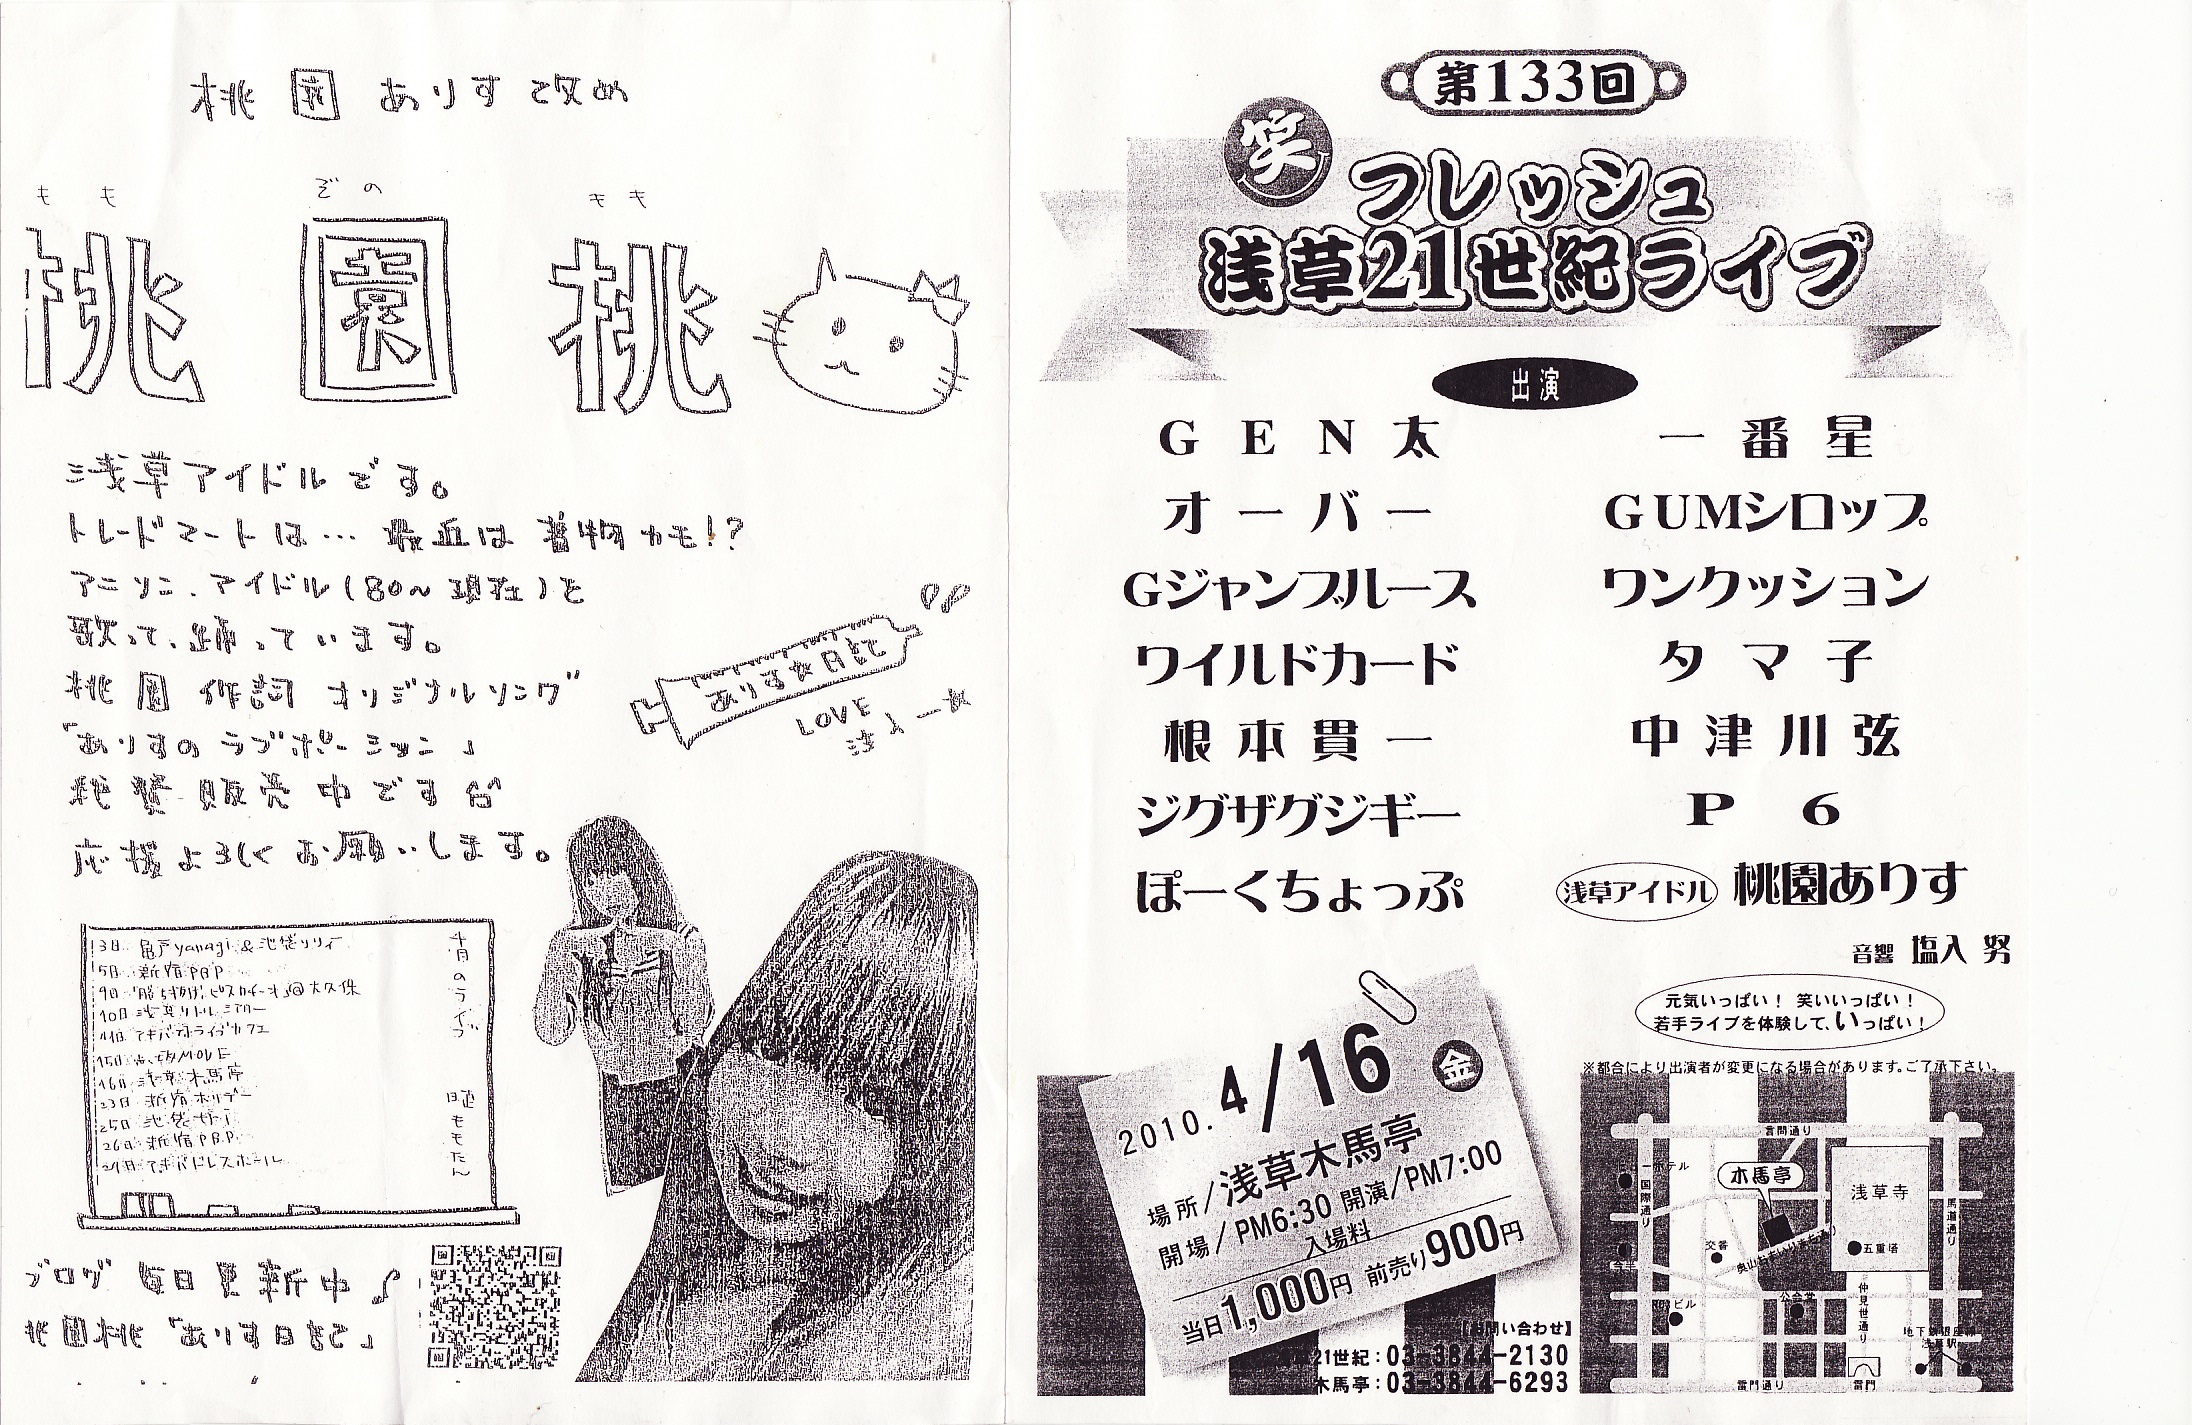 桃園ありす改め
もも ぞの もも
桃園桃
浅草アイドルです。
トレードマートは… 最近は着物カモ!?
アニソン、アイドル(80〜現在)と
歌って、踊っています。
桃園 作詞 オリジナルソング
「ありすのラブポーション」
絶賛販売中ですが
応援よろしくお願いします。
ありす☆日記
LOVE
注入ー☆
月のライブ
3日 亀戸yanagi&池袋リリィ
5日 新宿PBP
9日
@大久保
10日 浅草リトルシアター
15日
MOVE
16日 浅草木馬亭
23日 新宿ホリデー
25日 池袋
26日 新宿PBP
アキバドレスホール
ももたん
ブログ 毎日更新中♪
桃園桃「ありす日記」
第133回
笑
フレッシュ
浅草21世紀ライブ
出演
GEN太 一番星
オーバー GUMシロップ。
Gジャンブルース ワンクッション
ワイルドカード タマ子
根本貫一 中津川弦
ジグザグジギー P6
ぽーくちょっぷ 浅草アイドル 桃園ありす
音響 塩入 努
元気いっぱい! 笑いいっぱい!
若手ライブを体験して、いっぱい!
※都合により出演者が変更になる場合があります。ご了承下さい。
2010. 4/16 金
場所/浅草木馬亭
開場/PM6:30 開演/PM7:00
入場料
当日1,000円 前売り900円
【お問い合わせ】
21世紀:03-3844-2130
木馬亭:03-3844-6293
言問り
ホテル
国際通り
木馬亭
浅草寺
馬道通り
交番
五重塔
ビル
公会堂
仲見世通り
浅草駅
雷門通り
雷門